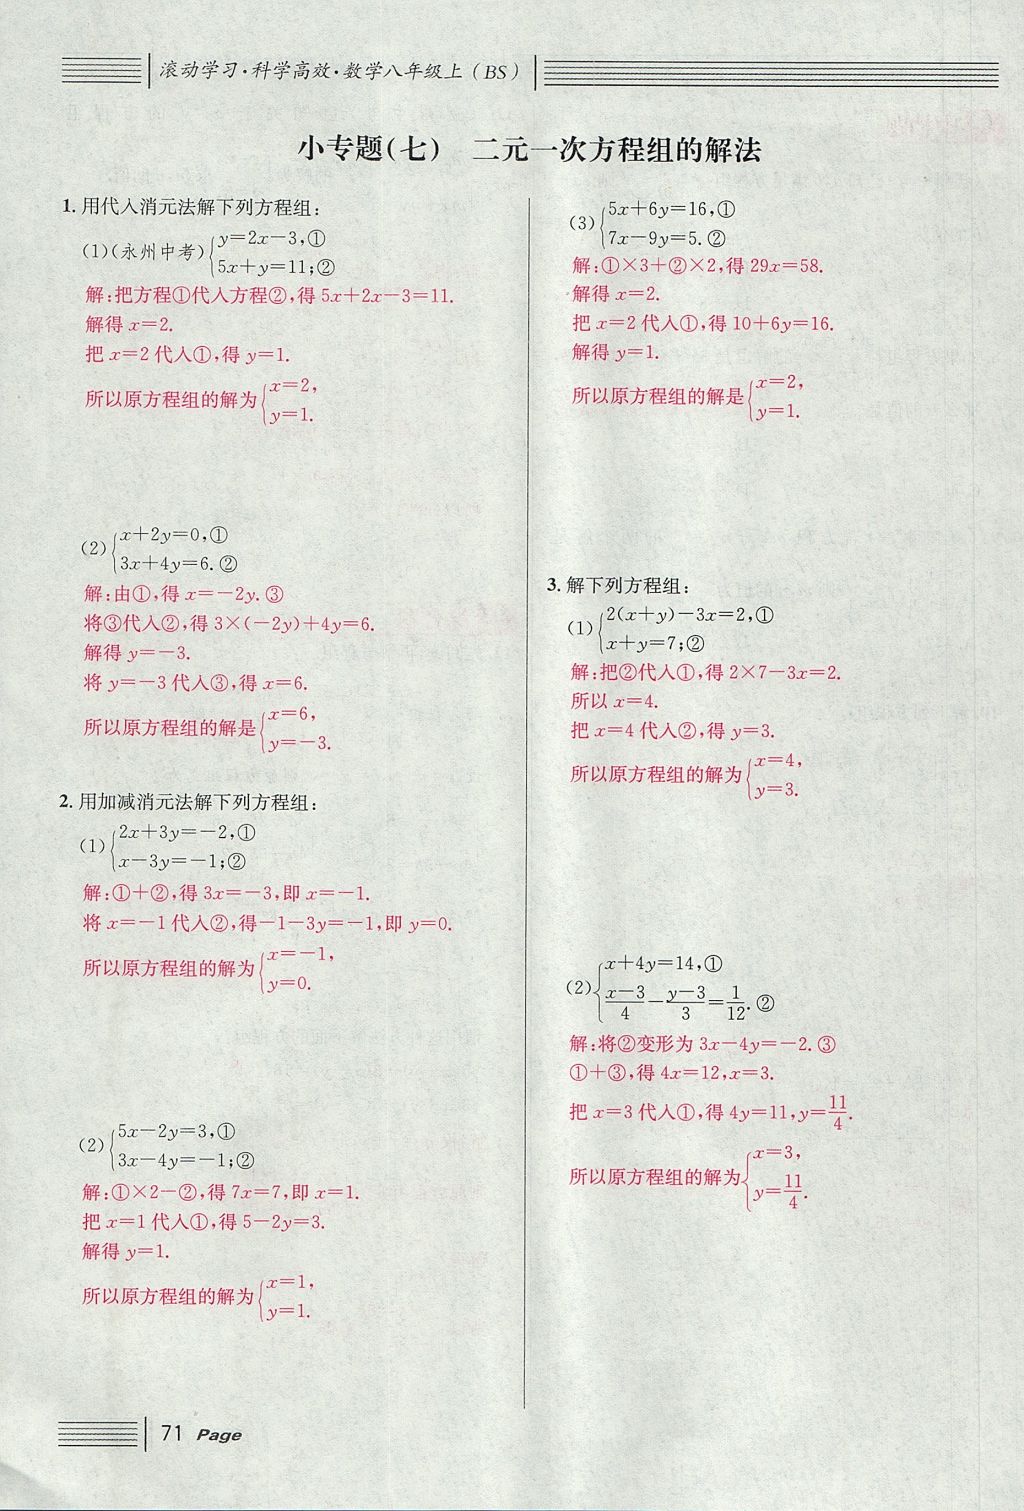 滚动学习·科学高效·数学八年级上(BS)
小专题(七) 二元一次方程组的解法
1.用代入消元法解下列方程组:
(1)(永州中考){y=2x-3,①
5x+y=11;②
解:把方程①代入方程②,得5x+2x-3=11.
解得x=2.
把x=2代入①,得y=1.
所以原方程组的解为{x=2,
y=1.
(2){x+2y=0,①
3x+4y=6.②
解:由①,得x=-2y.③
将③代入②,得3×(-2y)+4y=6.
解得y=-3.
将y=-3代入③,得x=6.
所以原方程组的解是{x=6,
y=-3.
2.用加减消元法解下列方程组:
(1){2x+3y=-2,①
x-3y=-1;②
解:①+②,得3x=-3,即x=-1.
将x=-1代入②,得-1-3y=-1,即y=0.
所以原方程组的解为{x=-1,
y=0.
(2){5x-2y=3,①
3x-4y=-1;②
解:①×2-②,得7x=7,即x=1.
把x=1代入①,得5-2y=3.
解得y=1.
所以原方程组的解为{x=1,
y=1.
(3){5x+6y=16,①
7x-9y=5.②
解:①×3+②×2,得29x=58.
解得x=2.
把x=2代入①,得10+6y=16.
解得y=1.
所以原方程组的解是{x=2,
y=1.
3.解下列方程组:
(1){2(x+y)-3x=2,①
x+y=7;②
解:把②代入①,得2×7-3x=2.
所以x=4.
把x=4代入②,得y=3.
所以原方程组的解为{x=4,
y=3.
(2){x+4y=14,①
(x-3)/4-(y-3)/3=1/12.②
解:将②变形为3x-4y=-2.③
①+③,得4x=12,x=3.
把x=3代入①,得4y=11,y=11/4.
所以原方程组的解为{x=3,
y=11/4.
71 Page